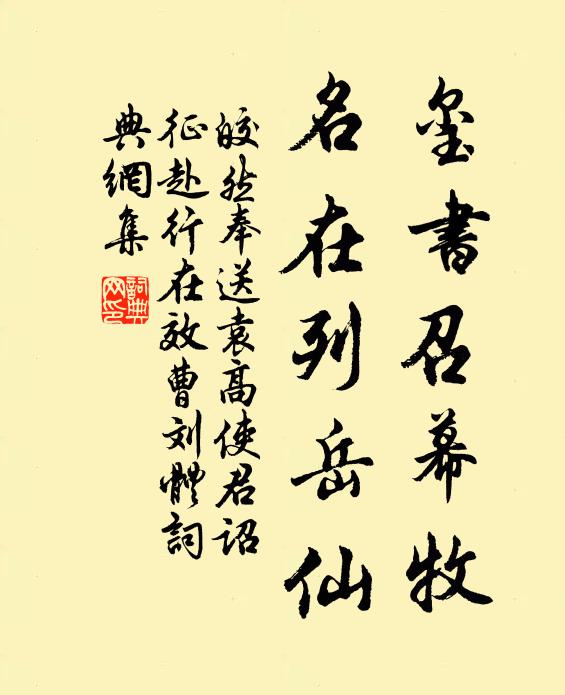 玺書召幕牧
名在列岳仙
皎然奉送袁高使君詔
征赴行在效曹刘體詞
典網集
詞典网印